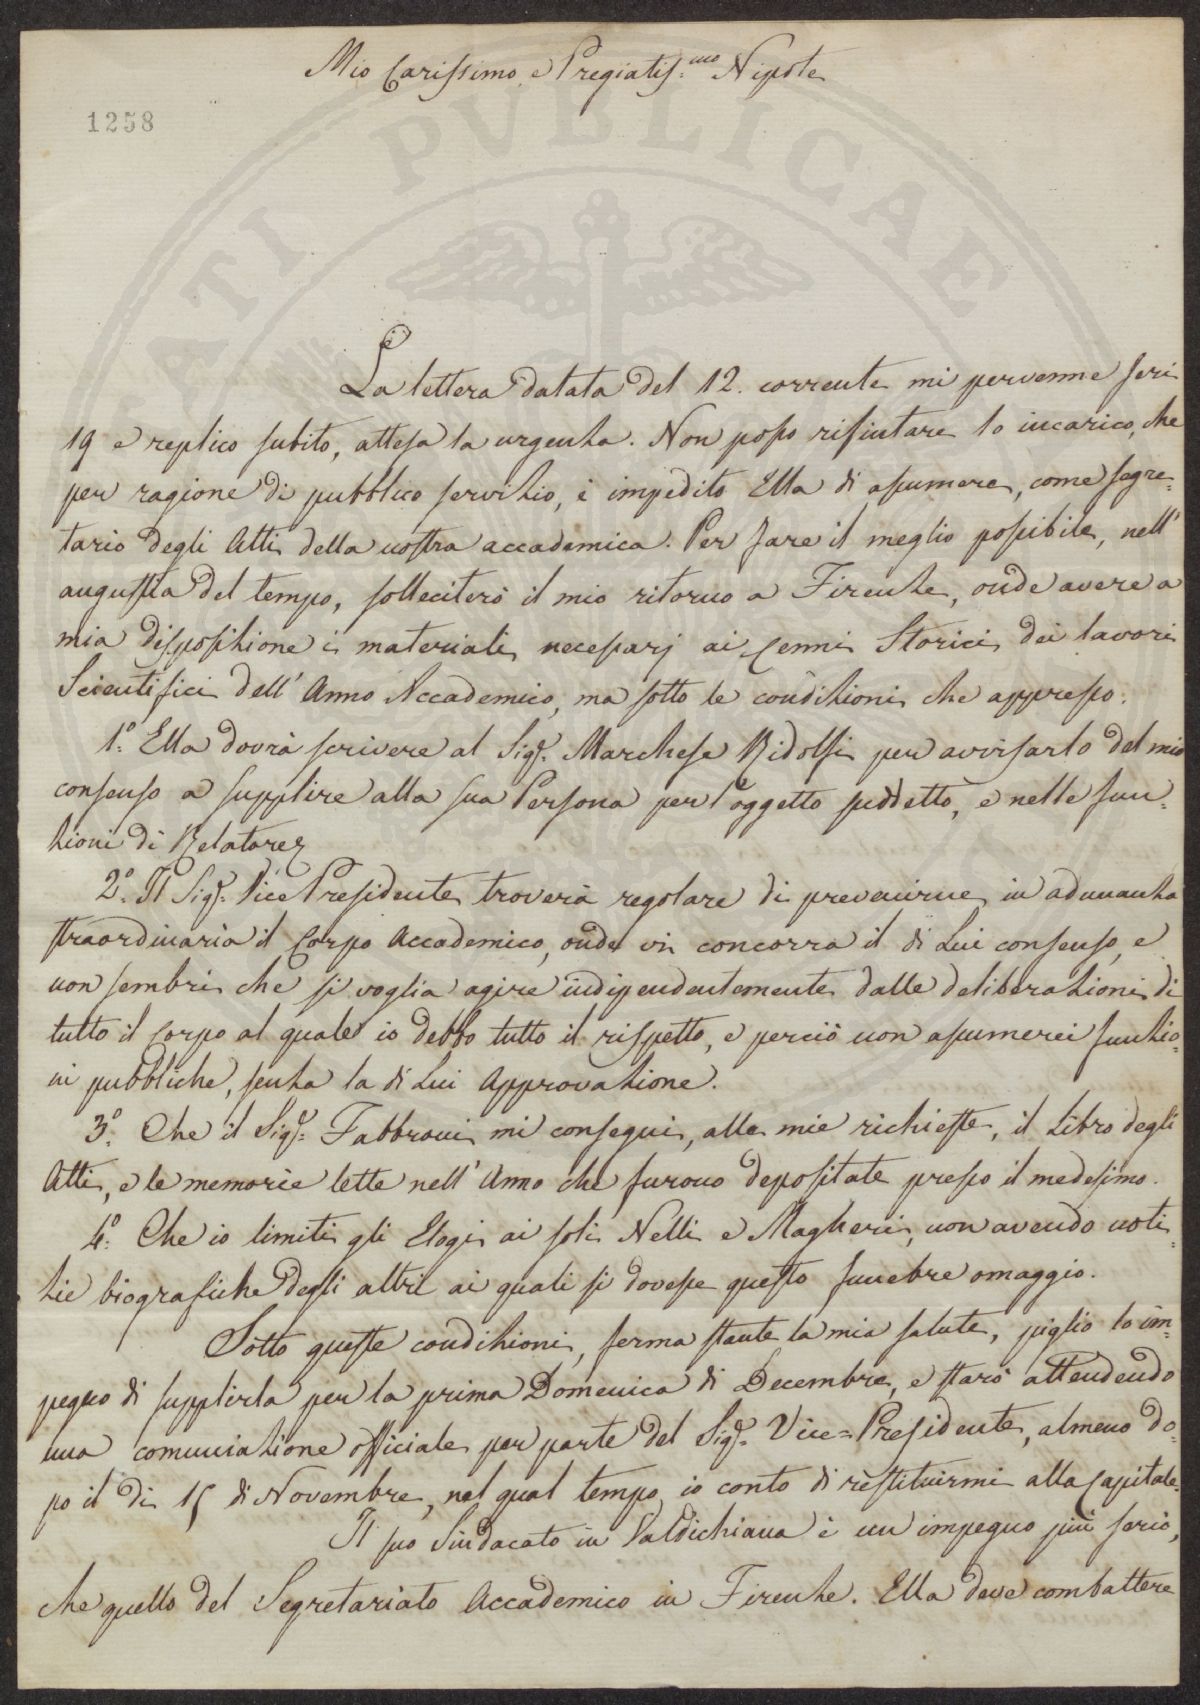 Mio Carissimo, e Pregiatis.mo Nipote
1258
PVBLICAE
La lettera datata del 12. corrente mi pervenne jeri
19 e replico subito, attesa la urgenza. Non posso rifiutare lo incarico, che
per ragione di pubblico servizio, è impedito Ella di assumere, come segre=
tario degli Atti della nostra accademica. Per fare il meglio possibile, nell'
angustia del tempo, solleciterò il mio ritorno a Firenze, onde avere a
mia disposizione i materiali necessarj ai Cenni Storici dei lavori
Scientifici dell' Anno Accademico, ma sotto le condizioni che appresso.
1.° Ella dovrà scrivere al Sig.r Marchese Ridolfi per avvisarlo del mio
consenso a supplire alla sua Persona per l'oggetto suddetto, e nelle fun=
zioni di Relatore.
2.° Il Sig.r Vice Presidente troverà regolare di prevenirne in adunanza
straordinaria il Corpo Accademico, onde vi concorra il di Lui consenso, e
non sembri che si voglia agire indipendentemente dalle deliberazioni di
tutto il Corpo al quale io debbo tutto il rispetto, e perciò non assumerei funzio=
ni pubbliche, senza la di Lui Approvazione.
3.° Che il Sig.r Fabbroni mi consegni, alle mie richieste, il Libro degli
Atti, e le memorie lette nell' Anno che furono depositate presso il medesimo.
4.° Che io limiti gli Elogi ai soli Nelli e Magheri, non avendo noti=
zie biografiche degli altri ai quali si dovesse questo funebre omaggio.
Sotto queste condizioni, ferma stante la mia salute, piglio lo im=
pegno di supplirla per la prima Domenica di Decembre, e starò attendendo
una comunicazione officiale per parte del Sig.r Vice=Presidente, almeno do=
po il dì 15 di Novembre, nel qual tempo io conto di restituirmi alla Capitale.
Il suo Sindacato in Valdichiana è un impegno più serio,
che quello del Segretariato Accademico in Firenze. Ella deve combattere